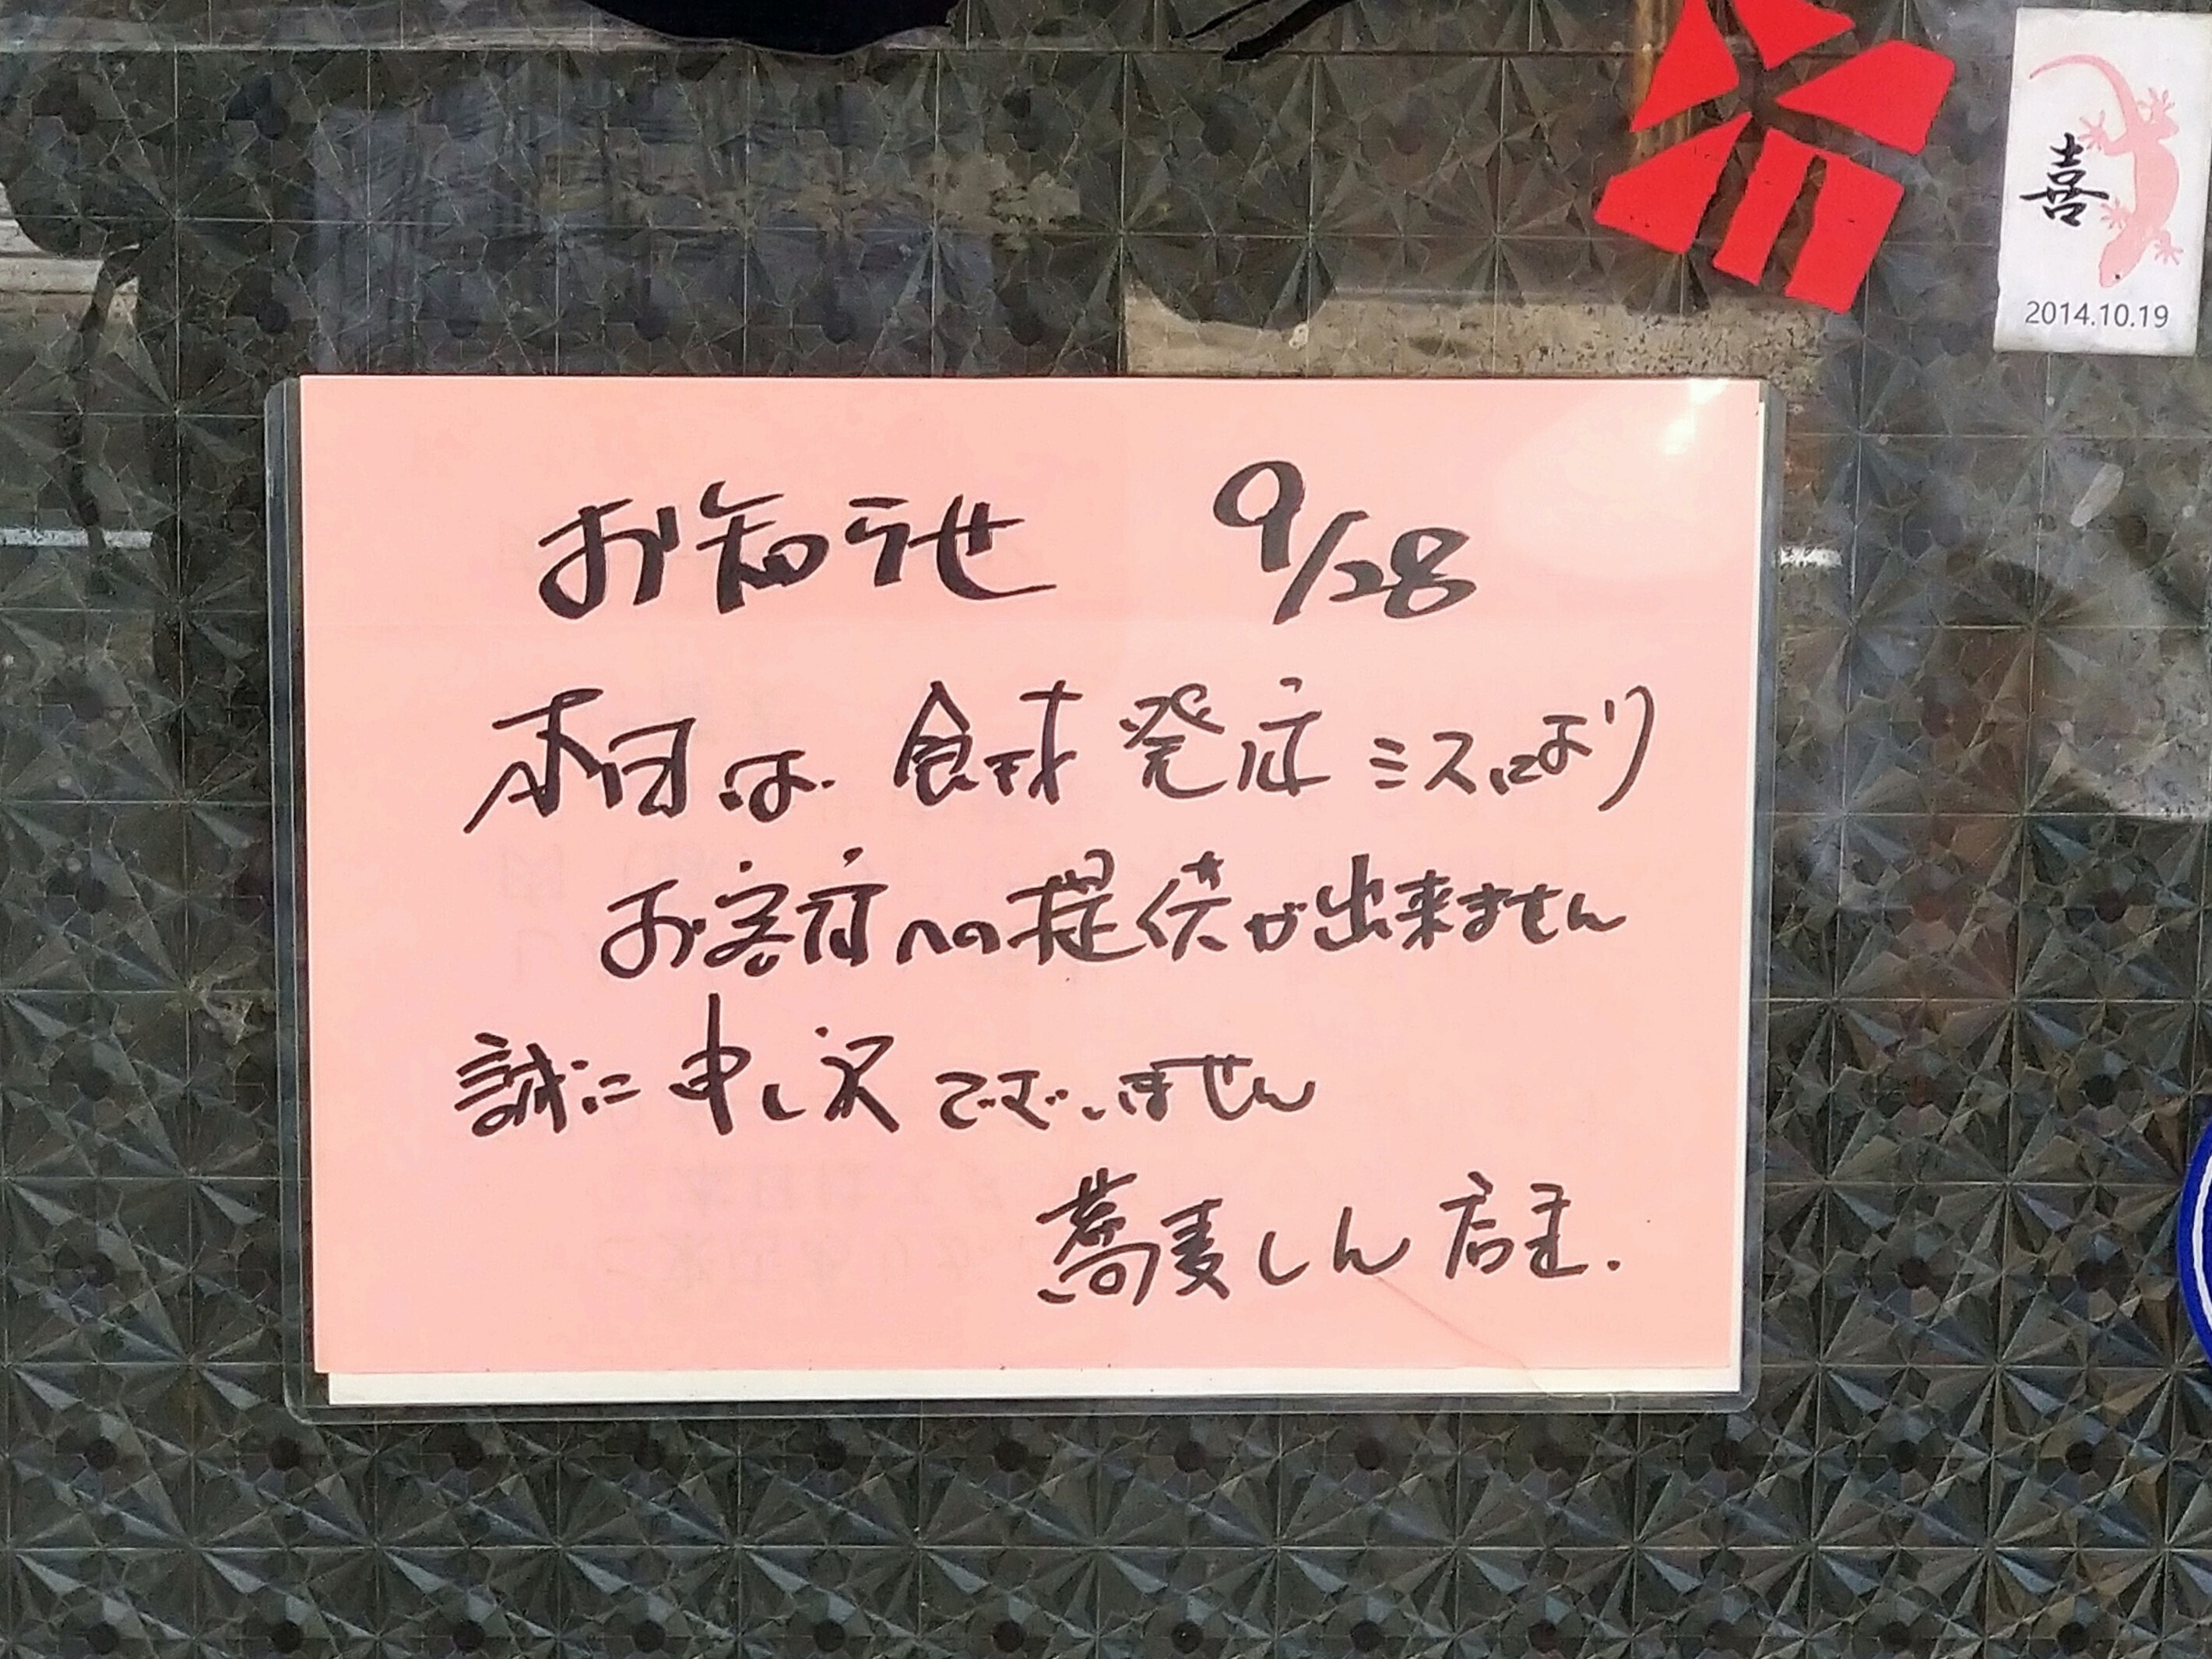 お知らせ 9/28
本日は 食材 発注 ミスにより
お客様への提供が出来ません
誠に 申し訳 ございません
蕎麦しん 店主.
喜
2014.10.19